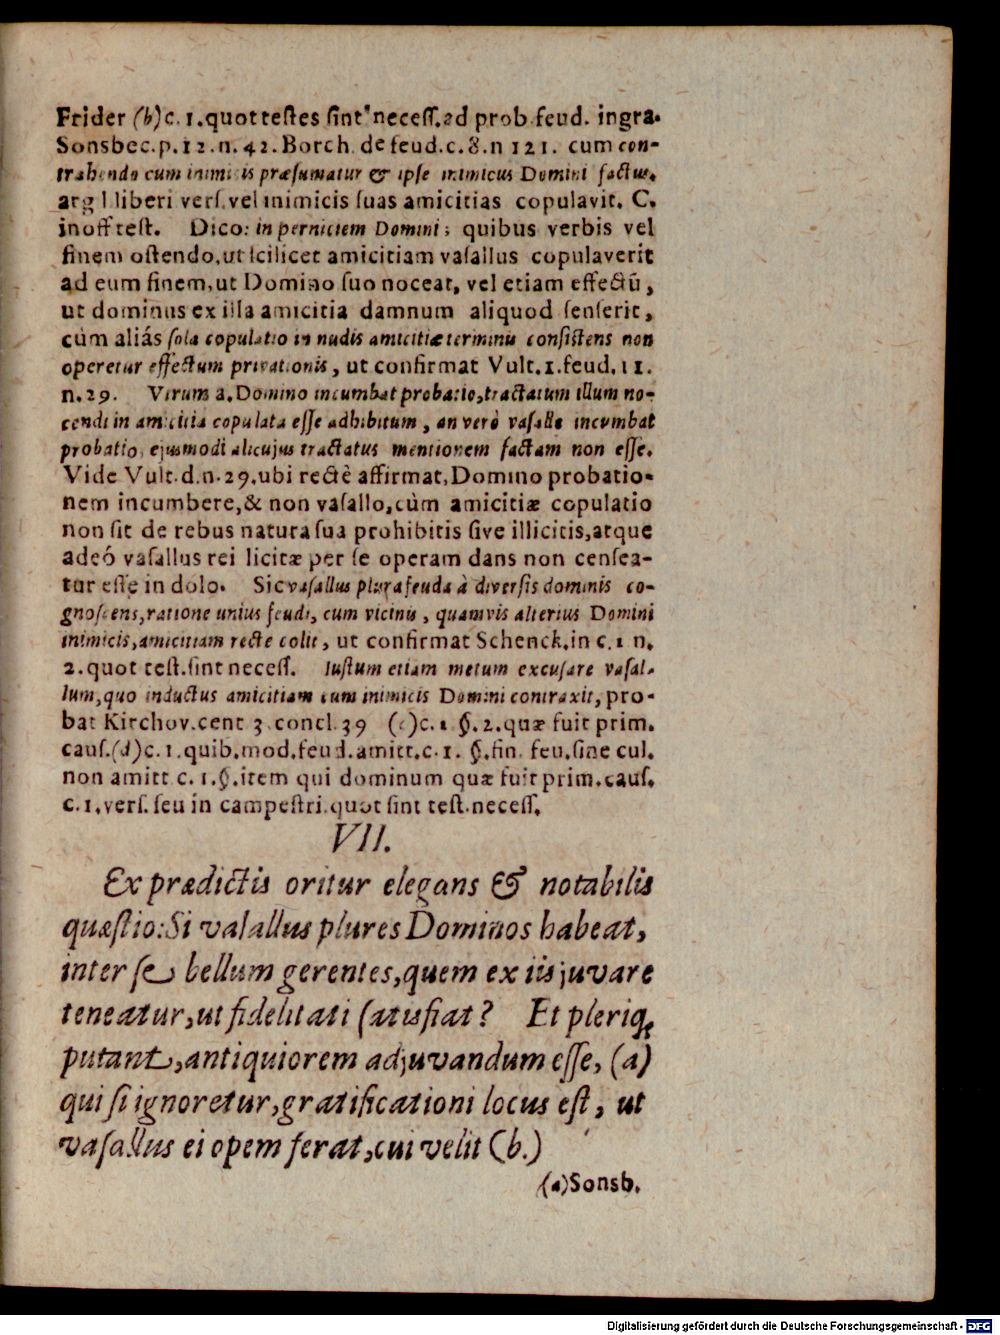 Frider (b) c. 1. quot testes sint necess. ad prob. feud. ingra-
Sonsbec. p. 12. n. 42. Borch. de feud. c. 8. n 121. cum con-
trahendo cum inimicis præsumatur & ipse inimicus Domini factus.
arg l liberi vers. vel inimicis suas amicitias copulavit. C.
inoff test. Dico: in perniciem Domini; quibus verbis vel
finem ostendo, ut scilicet amicitiam vasallus copulaverit
ad eum finem, ut Domino suo noceat, vel etiam effectū,
ut dominus ex illa amicitia damnum aliquod senserit,
cùm aliás sola copulatio in nudis amicitiæ terminis consistens non
operetur effectum privationis, ut confirmat Vult. 1. feud. 11.
n. 29. Utrum a. Domino incumbat probatio, tractatum illum no-
cendi in amicitia copulata esse adhibitum, an verò vasallo incumbat
probatio, ejusmodi alicujus tractatus mentionem factam non esse.
Vide Vult. d. n. 29. ubi rectè affirmat, Domino probatio-
nem incumbere, & non vasallo, cùm amicitiæ copulatio
non sit de rebus natura sua prohibitis sive illicitis, atque
adeó vasallus rei licitæ per se operam dans non censea-
tur esse in dolo. Sic vasallus plura feuda à diversis dominis co-
gnoscens, ratione unius feudi, cum vicinis, quamvis alterius Domini
inimicis, amicitiam recte colit, ut confirmat Schenck. in c. 1 n.
2. quot test. sint necess. Iustum etiam metum excusare vasal-
lum, quo inductus amicitiam cum inimicis Domini contraxit, pro-
bat Kirchov. cent 3. concl. 39 (c) c. 1 §. 2. quæ fuit prim.
caus. (d) c. 1. quib. mod. feud. amitt. c. 1. §. fin. feu. sine cul.
non amitt c. 1. §. item qui dominum quæ fuit prim. caus.
c. 1. vers. seu in campestri. quot sint test. necess.
VII.
Ex prædictis oritur elegans & notabilis
quæstio: Si vasallus plures Dominos habeat,
inter se bellum gerentes, quem ex iis juvare
teneatur, ut fidelitati satisfiat? Et pleriq;
putant, antiquiorem adjuvandum esse, (a)
qui si ignoretur, gratificationi locus est, ut
vasallus ei opem ferat, cui velit (b.)
(a) Sonsb.
Digitalisierung gefördert durch die Deutsche Forschungsgemeinschaft - DFG